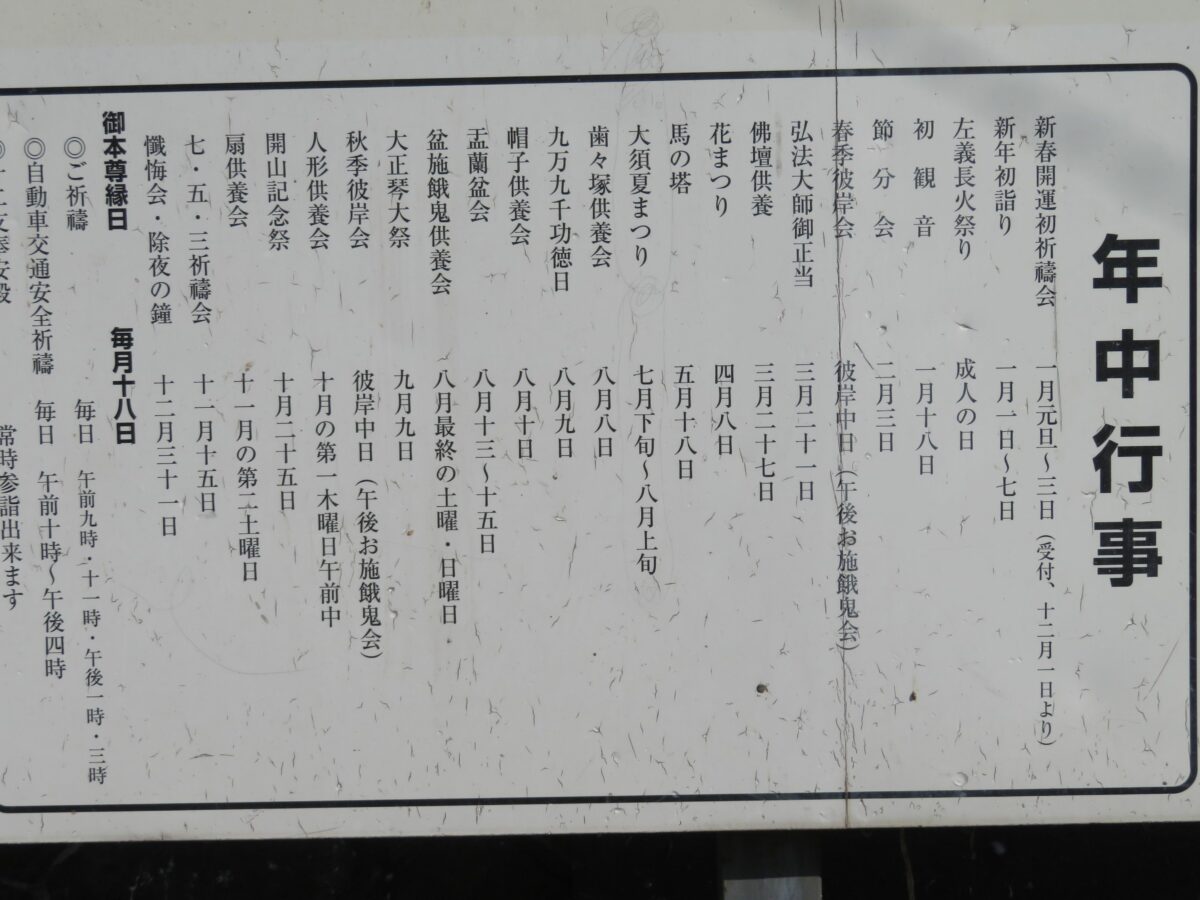 年中行事
新春開運初祈禱会 一月元旦～三日（受付、十二月一日より）
新年初詣り 一月一日～七日
左義長火祭り 成人の日
初観音 一月十八日
節分会 二月三日
春季彼岸会 彼岸中日（午後お施餓鬼会）
弘法大師御正当 三月二十一日
佛壇供養 三月二十七日
花まつり 四月八日
馬の塔 五月十八日
大須夏まつり 七月下旬～八月上旬
歯々塚供養会 八月八日
九万九千功徳日 八月九日
帽子供養会 八月十日
盂蘭盆会 八月十三～十五日
盆施餓鬼供養会 八月最終の土曜・日曜日
大正琴大祭 九月九日
秋季彼岸会 彼岸中日（午後お施餓鬼会）
人形供養会 十月の第一木曜日午前中
開山記念祭 十月二十五日
扇供養会 十一月の第二土曜日
七・五・三祈禱会 十一月十五日
懺悔会・除夜の鐘 十二月三十一日
御本尊縁日 毎月十八日
◎ご祈禱 毎日 午前九時・十一時・午後一時・三時
◎自動車交通安全祈禱 毎日 午前十時～午後四時
常時参詣出来ます